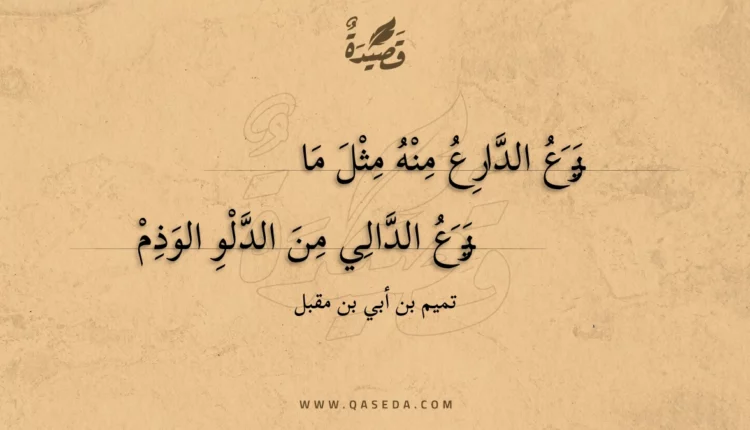 قَصِيدَةٌ
الدَّارِعُ مِنْهُ مِثْلَ مَا
الدَّالِي مِنَ الدَّلْوِ الوَذِمْ
تميم بن أبي بن مقبل
WWW.QASEDA.COM